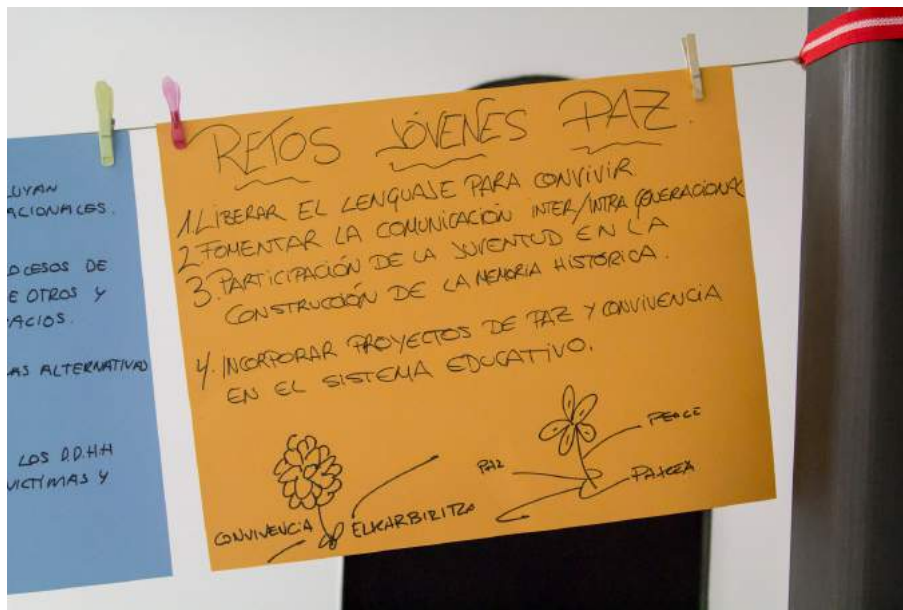 LUYAN
ACIONALES.
OCESOS DE
E OTROS Y
ACIOS.
AS ALTERNATIVAS
LOS D.D.H.H
VICTIMAS Y
RETOS JÓVENES PAZ.
1. LIBERAR EL LENGUAJE PARA CONVIVIR
2 FOMENTAR LA COMUNICACIÓN INTER/INTRA GENERACIONAL
3. PARTICIPACIÓN DE LA JUVENTUD EN LA
CONSTRUCCIÓN DE LA MEMORIA HISTÓRICA.
4. INCORPORAR PROYECTOS DE PAZ Y CONVIVENCIA
EN EL SISTEMA EDUCATIVO.
PEACE
PAZ
PAKEA
CONVIVENCIA ELKARBIZITZA